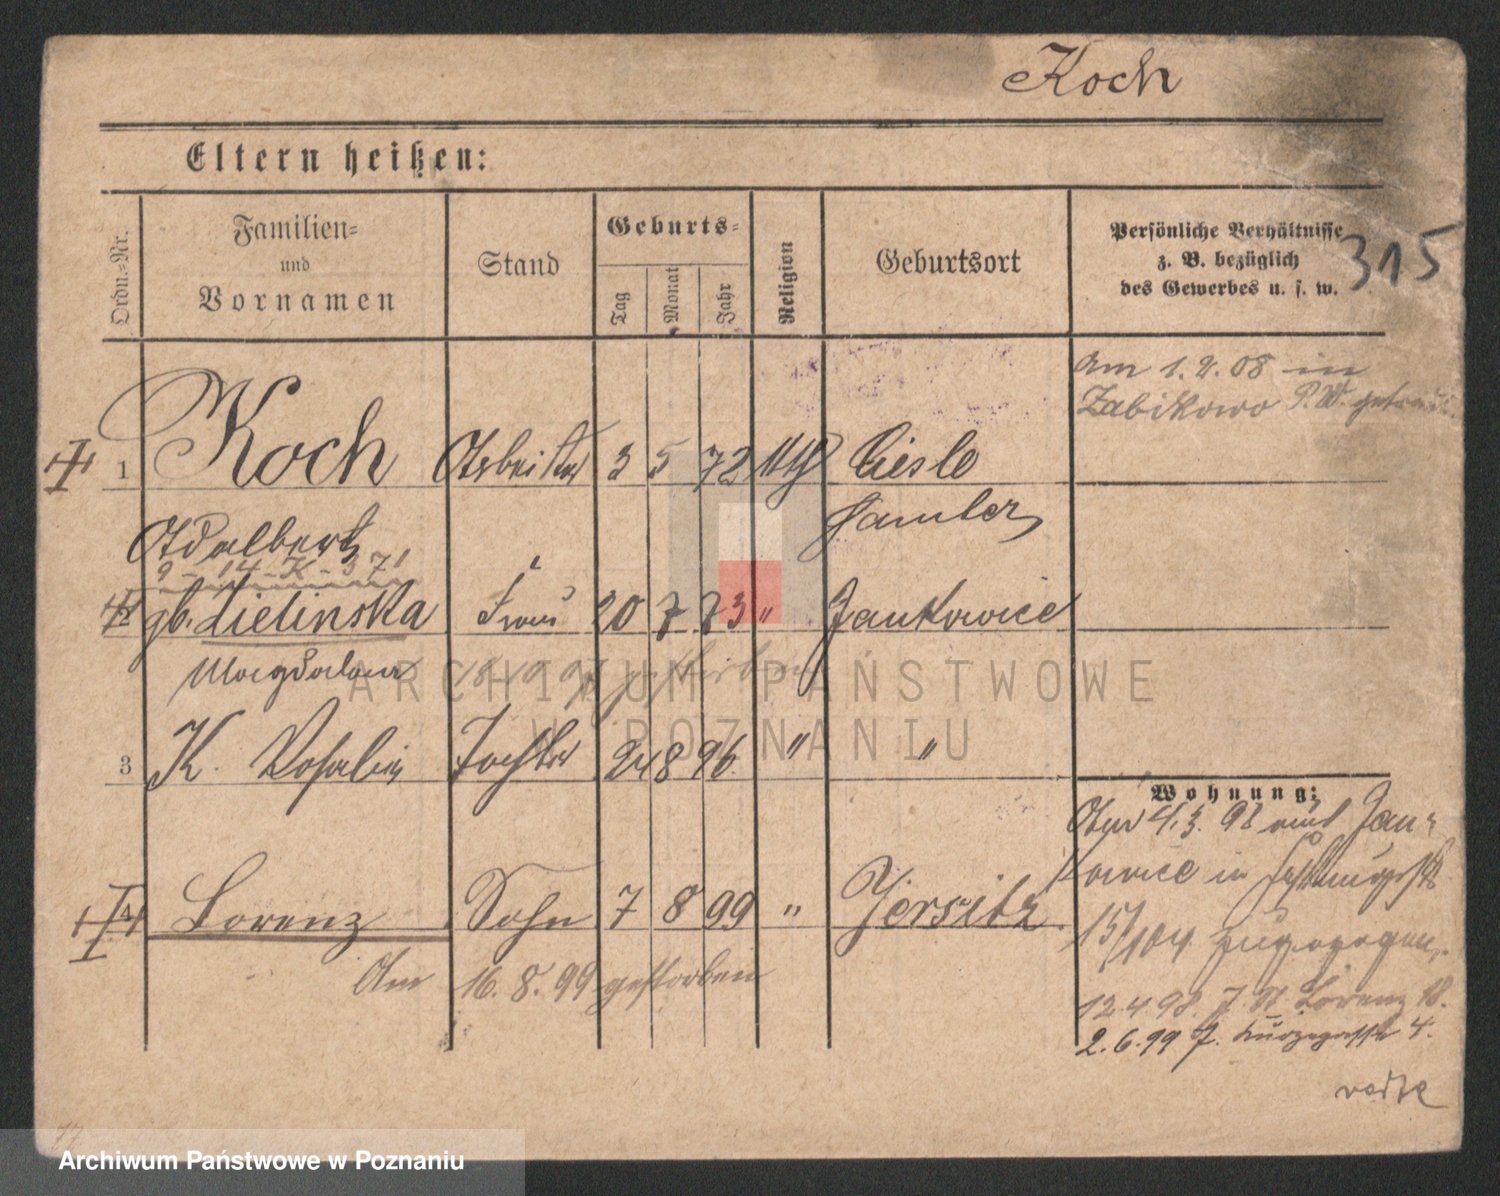 Koch
Eltern heißen:
Ordn.-Nr.
Familien-
und
Vornamen
Stand
Geburts-
Tag
Monat
Jahr
Religion
Geburtsort
Persönliche Verhältnisse
z. B. bezüglich
des Gewerbes u. s. w.
315
Am 1. 2. 08 in
Zabikowo P.W.
1 Koch Arbeiter 3 5 72
Adalbert
9-14-K-371
2 gb. Zielinska Frau 20 7 73 " Jankowice
Magdalena
gestorben
3 K. Rosalie Tochter 24 8 96 " "
Wohnung:
4. 3. 98 Jan-
kowice in
15/ zugezogen.
4 Lorenz Sohn 7 8 99 " Jersitz
Am 16. 8. 99 gestorben
12.4.98. J. St. Lorenz 18.
2.6.99 J. 4.
ARCHIWUM PAŃSTWOWE
W POZNANIU
Archiwum Państwowe w Poznaniu